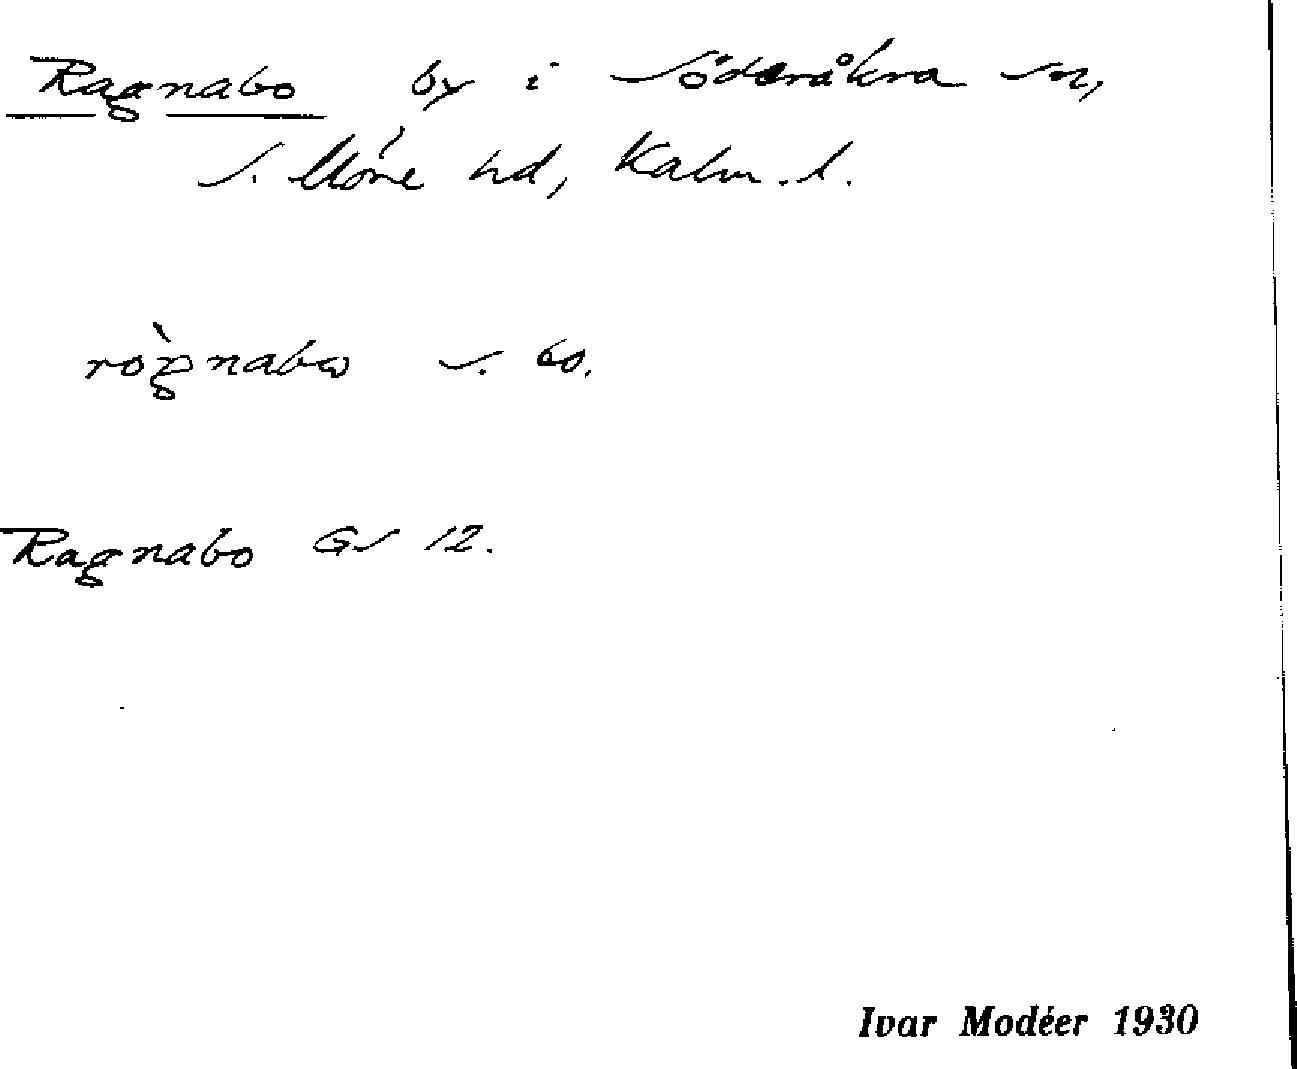 Ragnabo by i Söderåkra sn,
S. Möre hd, Kalm. l.
Ragnabo GS 12.
Ivar Modéer 1930